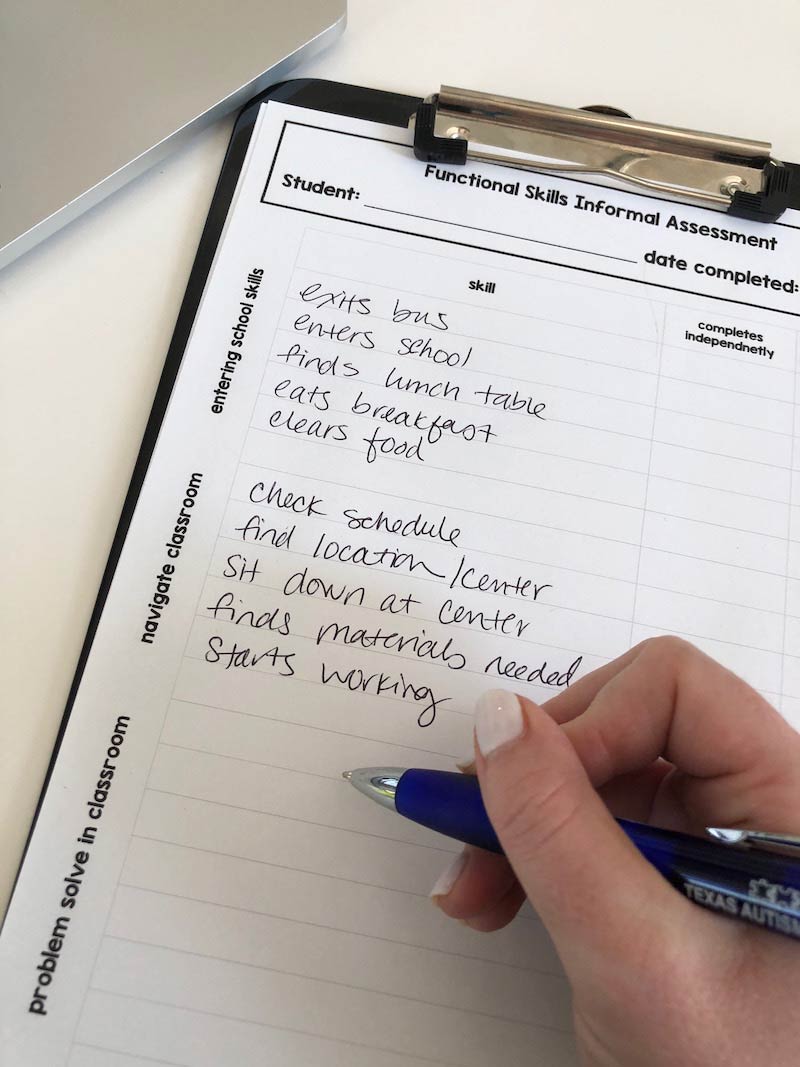 Functional Skills Informal Assessment
Student: date completed:
skill
completes
independnetly
entering school skills
exits bus
enters school
finds lunch table
eats breakfast
clears food
navigate classroom
check schedule
find location/center
sit down at center
finds materials needed
starts working
problem solve in classroom
TEXAS